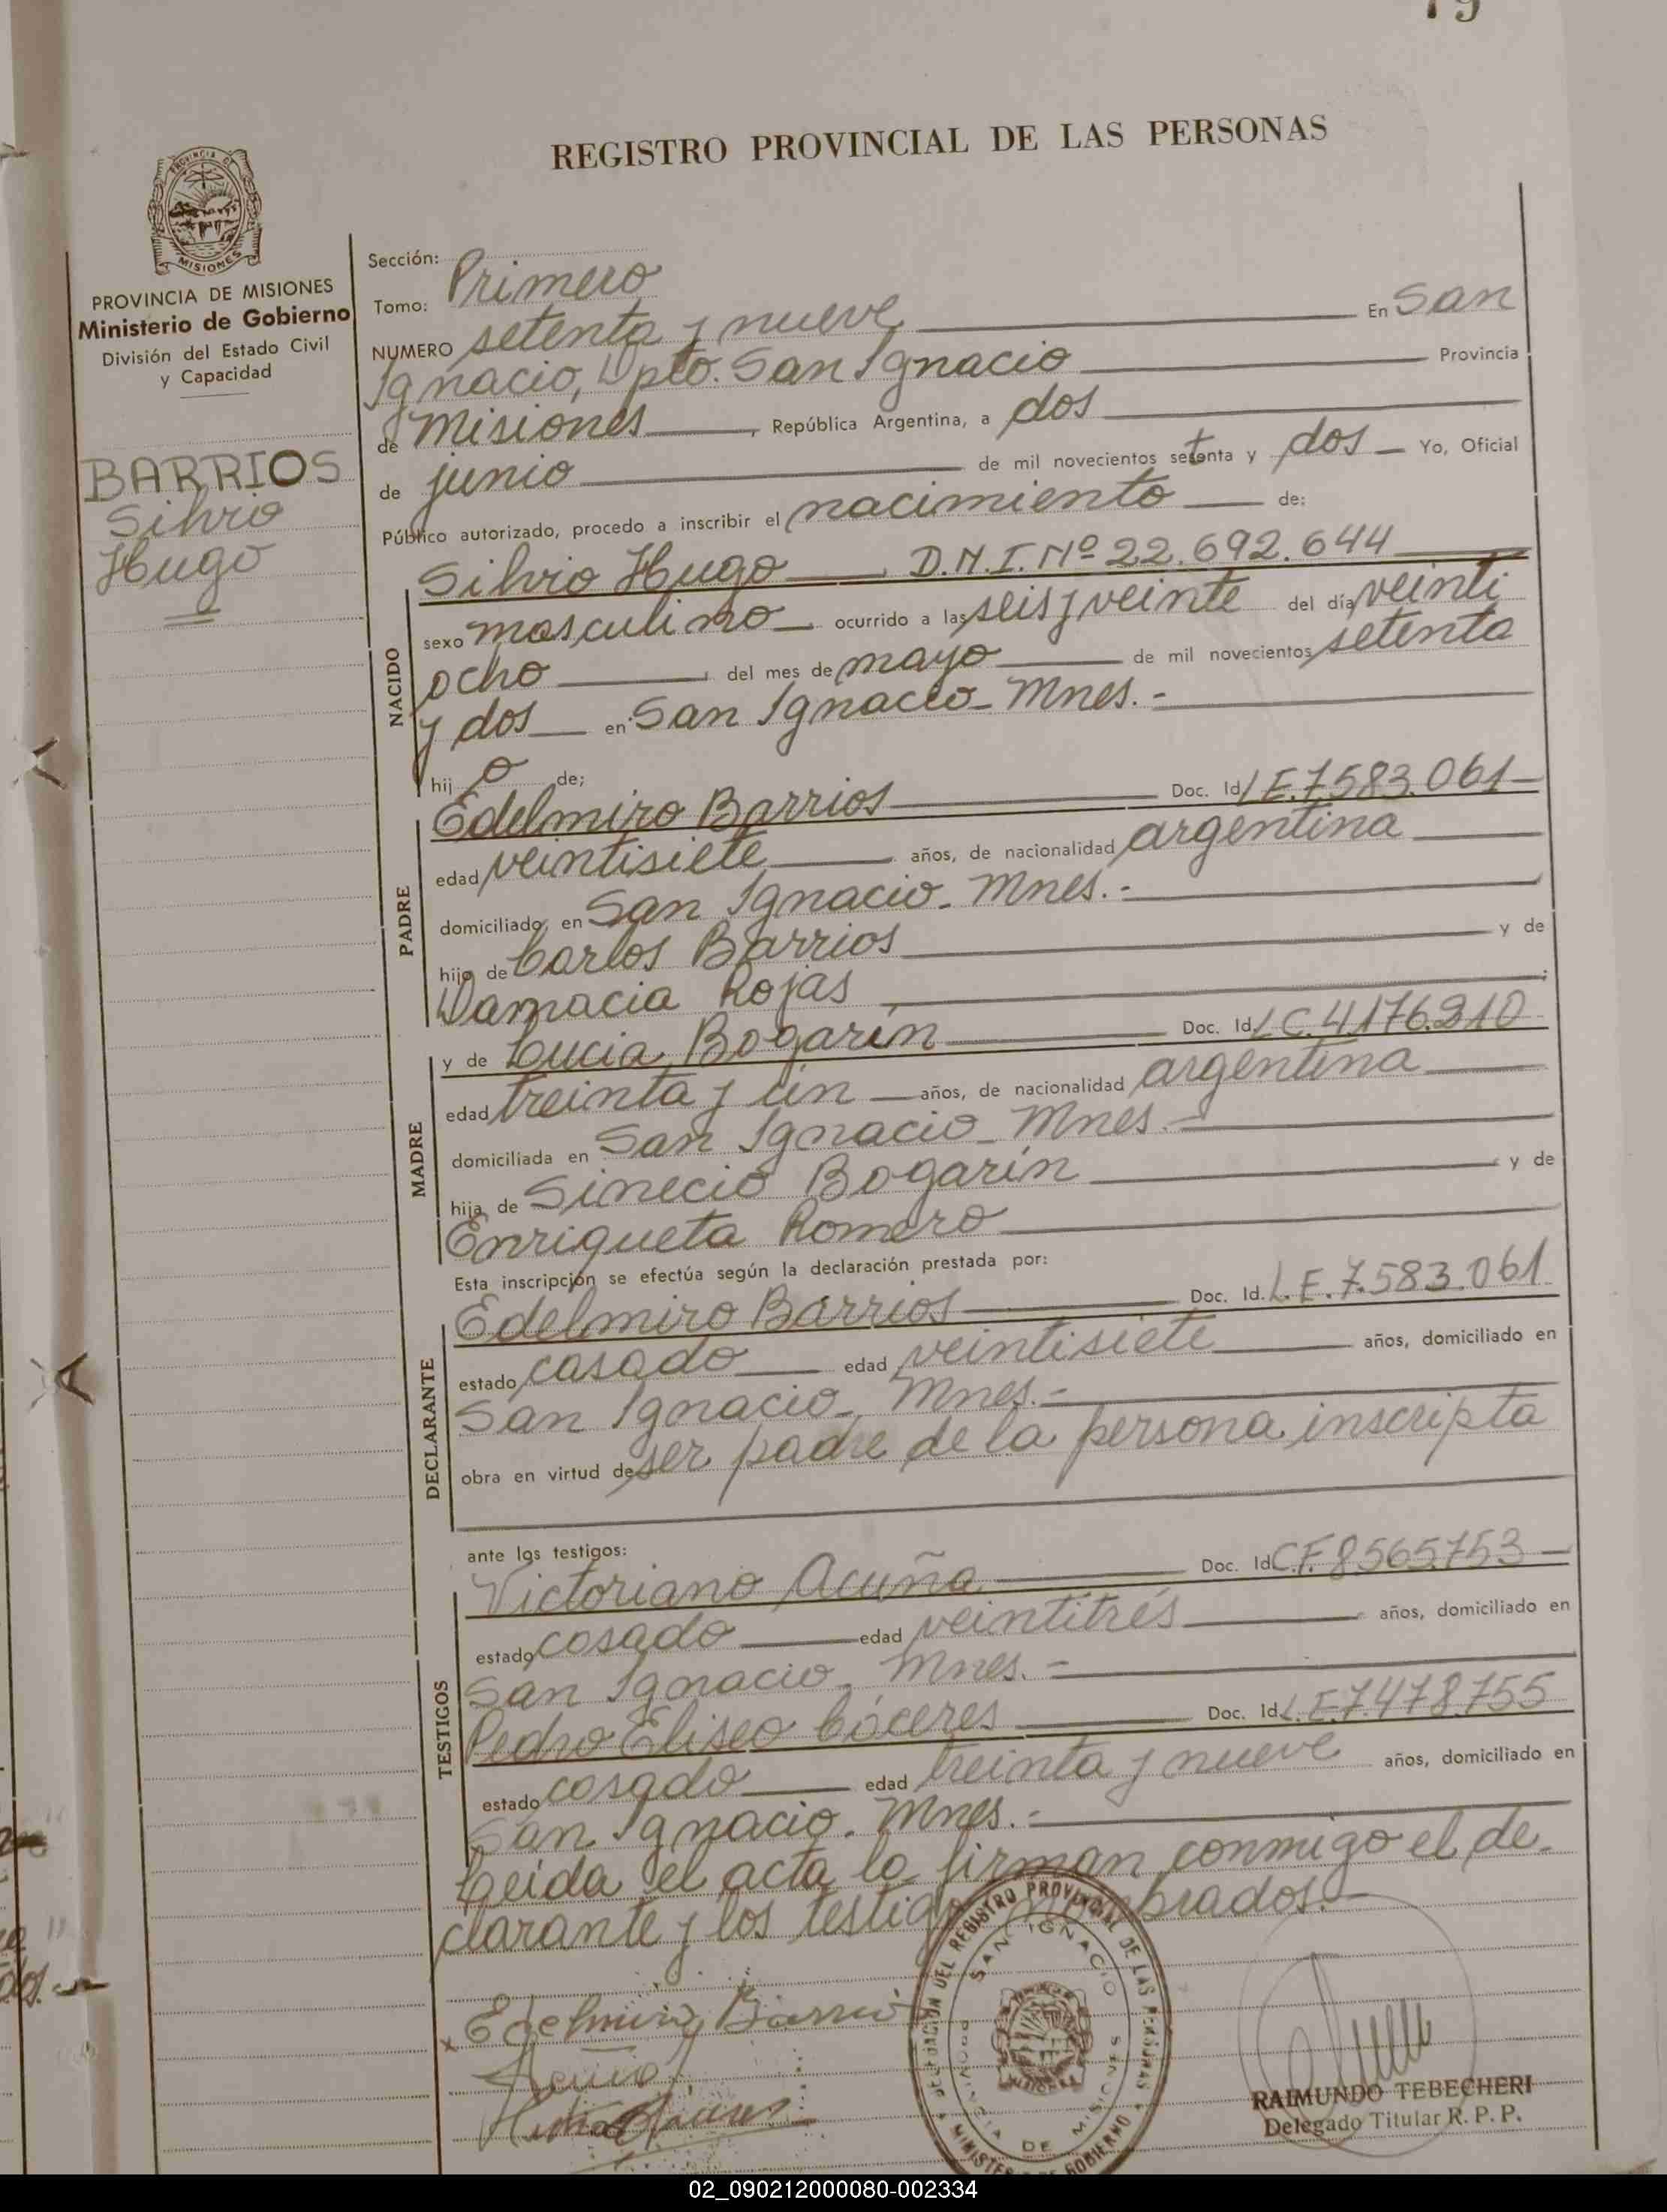 79
REGISTRO PROVINCIAL DE LAS PERSONAS
PROVINCIA DE MISIONES
Ministerio de Gobierno
División del Estado Civil
y Capacidad
BARRIOS
Silvio
Hugo
Sección:
Tomo: Primero
NUMERO setenta y nueve En San
Ignacio, Dpto. San Ignacio Provincia
de Misiones, República Argentina, a dos
de junio de mil novecientos setenta y dos Yo, Oficial
Público autorizado, procedo a inscribir el nacimiento de:
Silvio Hugo D.N.I. Nº 22.692.644
NACIDO
sexo masculino ocurrido a las seis y veinte del día veinti
ocho del mes de mayo de mil novecientos setenta
y dos en San Ignacio - Mnes.-
hij o de;
PADRE
Edelmiro Barrios Doc. Id. L.E. 7.583.061
edad veintisiete años, de nacionalidad argentina
domiciliado en San Ignacio - Mnes.-
hijo de Carlos Barrios y de
Damacia Rojas
MADRE
y de Lucia Bogarín Doc. Id. L.C. 4.176.210
edad treinta y un años, de nacionalidad argentina
domiciliada en San Ignacio - Mnes.-
hija de Sinecio Bogarín y de
Enriqueta Romero
Esta inscripción se efectúa según la declaración prestada por:
DECLARANTE
Edelmiro Barrios Doc. Id. L.E. 7.583.061
estado casado edad veintisiete años, domiciliado en
San Ignacio - Mnes.-
obra en virtud de ser padre de la persona inscripta
ante los testigos:
TESTIGOS
Victoriano Acuña Doc. Id C.F. 8565753
estado casado edad veintitrés años, domiciliado en
San Ignacio - Mnes.-
Pedro Eliseo Cáceres Doc. Id. L.E. 7.478.755
estado casado edad treinta y nueve años, domiciliado en
San Ignacio - Mnes.-
Leida el acta la firman conmigo el de-
clarante y los testigos nombrados.-
x Edelmiro Barrio
Acuña
DELEGACION DEL REGISTRO PROVINCIAL DE LAS PERSONAS
SAN IGNACIO
PROVINCIA DE MISIONES
MINISTERIO DE GOBIERNO
RAIMUNDO TEBECHERI
Delegado Titular R. P. P.
02_090212000080-002334